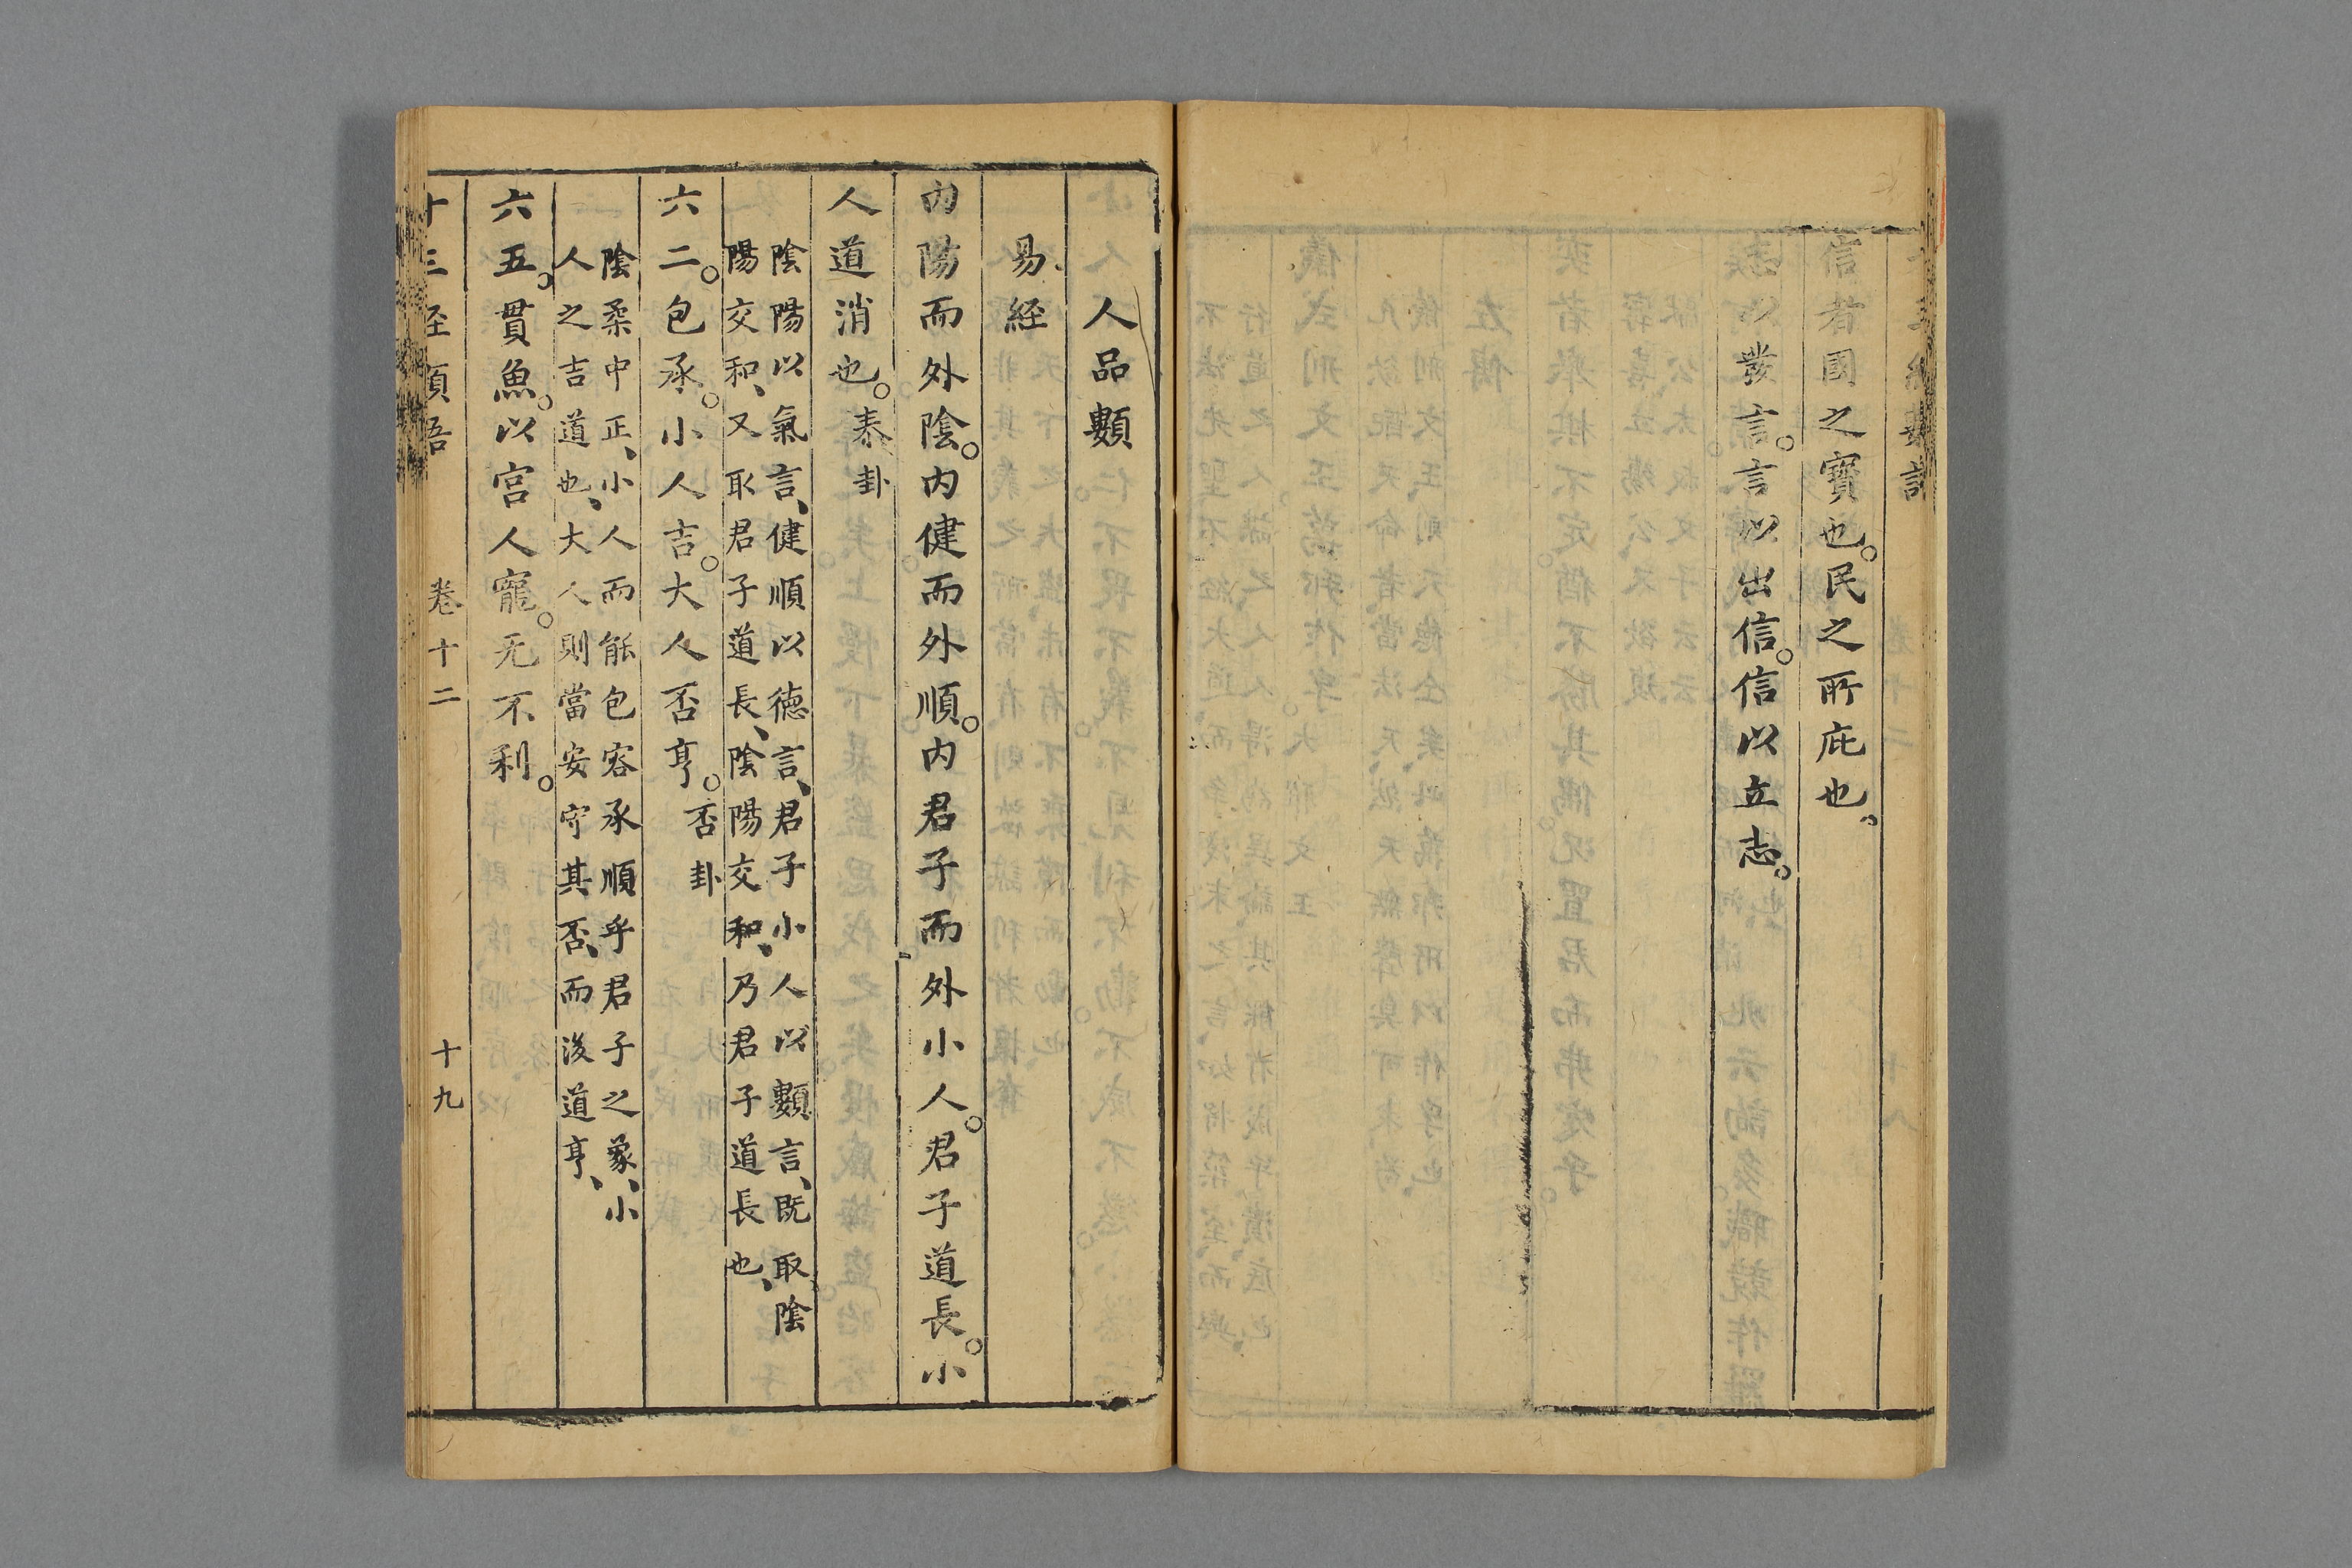 信者國之寳也。民之所庇也。
以發言。言以出信。信以立志。
人品類
易経
内陽而外陰。内健而外順。内君子而外小人。君子道長。小
人道消也。泰卦
陰陽以氣言、健順以徳言、君子小人以類言、既取陰
陽交和、又取君子道長、陰陽交和、乃君子道長也、
六二。包承。小人吉。大人否亨。否卦
陰柔中正、小人而能包容承順乎君子之象、小
人之吉道也、大人則當安守其否、而後道亨、
六五。貫魚。以宮人寵。无不利。
十三経類語 卷十二 十九